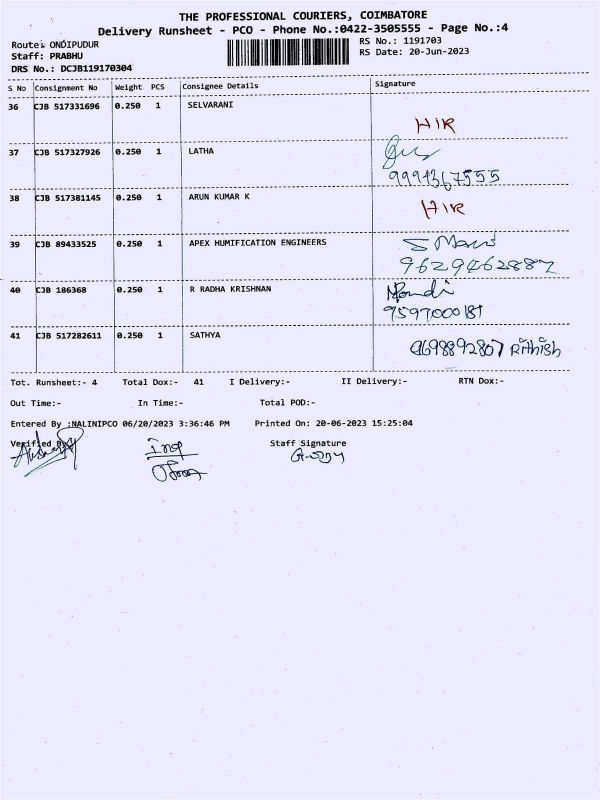 THE PROFESSIONAL COURIERS, COIMBATORE
Delivery Runsheet - PCO - Phone No.:0422-3505555 - Page No.:4
Route: ONDIPUDUR RS No.: 1191703
Staff: PRABHU RS Date: 20-Jun-2023
DRS No.: DCJB119170304
S No Consignment No Weight PCS Consignee Details Signature
36 CJB 517331696 0.250 1 SELVARANI
HIR
37 CJB 517327926 0.250 1 LATHA
9994367555
38 CJB 517381145 0.250 1 ARUN KUMAR K
HIR
39 CJB 89433525 0.250 1 APEX HUMIFICATION ENGINEERS
9629462887
40 CJB 186368 0.250 1 R RADHA KRISHNAN
9597000181
41 CJB 517282611 0.250 1 SATHYA
9698892807 Rithish
Tot. Runsheet:- 4 Total Dox:- 41 I Delivery:- II Delivery:- RTN Dox:-
Out Time:- In Time:- Total POD:-
Entered By :NALINIPCO 06/20/2023 3:36:46 PM Printed On: 20-06-2023 15:25:04
Verified By Staff Signature